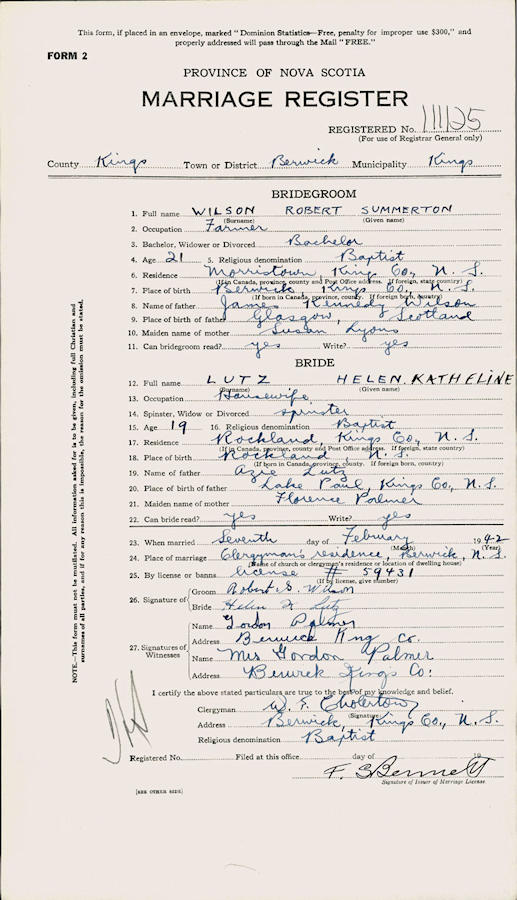 This form, if placed in an envelope, marked "Dominion Statistics—Free, penalty for improper use $300," and
properly addressed will pass through the Mail "FREE."
FORM 2
PROVINCE OF NOVA SCOTIA
MARRIAGE REGISTER
REGISTERED No. 111125
(For use of Registrar General only)
County Kings Town or District Berwick Municipality Kings
BRIDEGROOM
1. Full name WILSON ROBERT SUMMERTON
(Surname) (Given name)
2. Occupation Farmer
3. Bachelor, Widower or Divorced Bachelor
4. Age 21 5. Religious denomination Baptist
6. Residence Morristown, King Co., N. S.
(If in Canada, province, county and Post Office address. If foreign, state country)
7. Place of birth Berwick Kings Co., N. S.
(If born in Canada, province, county. If foreign born, country)
8. Name of father James Kennedy Wilson
9. Place of birth of father Glasgow, Scotland
10. Maiden name of mother Susan Lyons
11. Can bridegroom read? yes Write? yes
BRIDE
12. Full name LUTZ HELEN KATHELINE
(Surname) (Given name)
13. Occupation Housewife
14. Spinster, Widow or Divorced spinster
15. Age 19 16. Religious denomination Baptist
17. Residence Rockland, Kings Co., N. S.
(If in Canada, province, county and Post Office address. If foreign, state country)
18. Place of birth Rockland N. S.
(If born in Canada, province, county. If foreign born, country)
19. Name of father Azie Lutz
20. Place of birth of father Lake Paul, Kings Co., N. S.
21. Maiden name of mother Florence Palmer
22. Can bride read? yes Write? yes
23. When married Seventh day of February 1942
(Month) (Year)
24. Place of marriage Clergyman's residence, Berwick, N. S.
(Name of church or clergymen's residence or location of dwelling house)
25. By license or banns license # 59431
(If by license, give number)
26. Signature of Groom Robert S. Wilson
Bride Helen K Lutz
27. Signatures of Witnesses
Name Gordon Palmer
Address Berwick King Co.
Name Mrs Gordon Palmer
Address Berwick Kings Co:
I certify the above stated particulars are true to the best of my knowledge and belief.
Clergyman W. E. Cholerton
(Signature)
Address Berwick, Kings Co., N. S.
Religious denomination Baptist
Registered No. Filed at this office day of 19
F. S Bennett
Signature of Issuer of Marriage License.
(SEE OTHER SIDE)
NOTE.—This form must not be mutilated. All information asked for is to be given, including full Christian and
surnames of all parties, and if for any reason this is impossible, the reason for the omission must be stated.